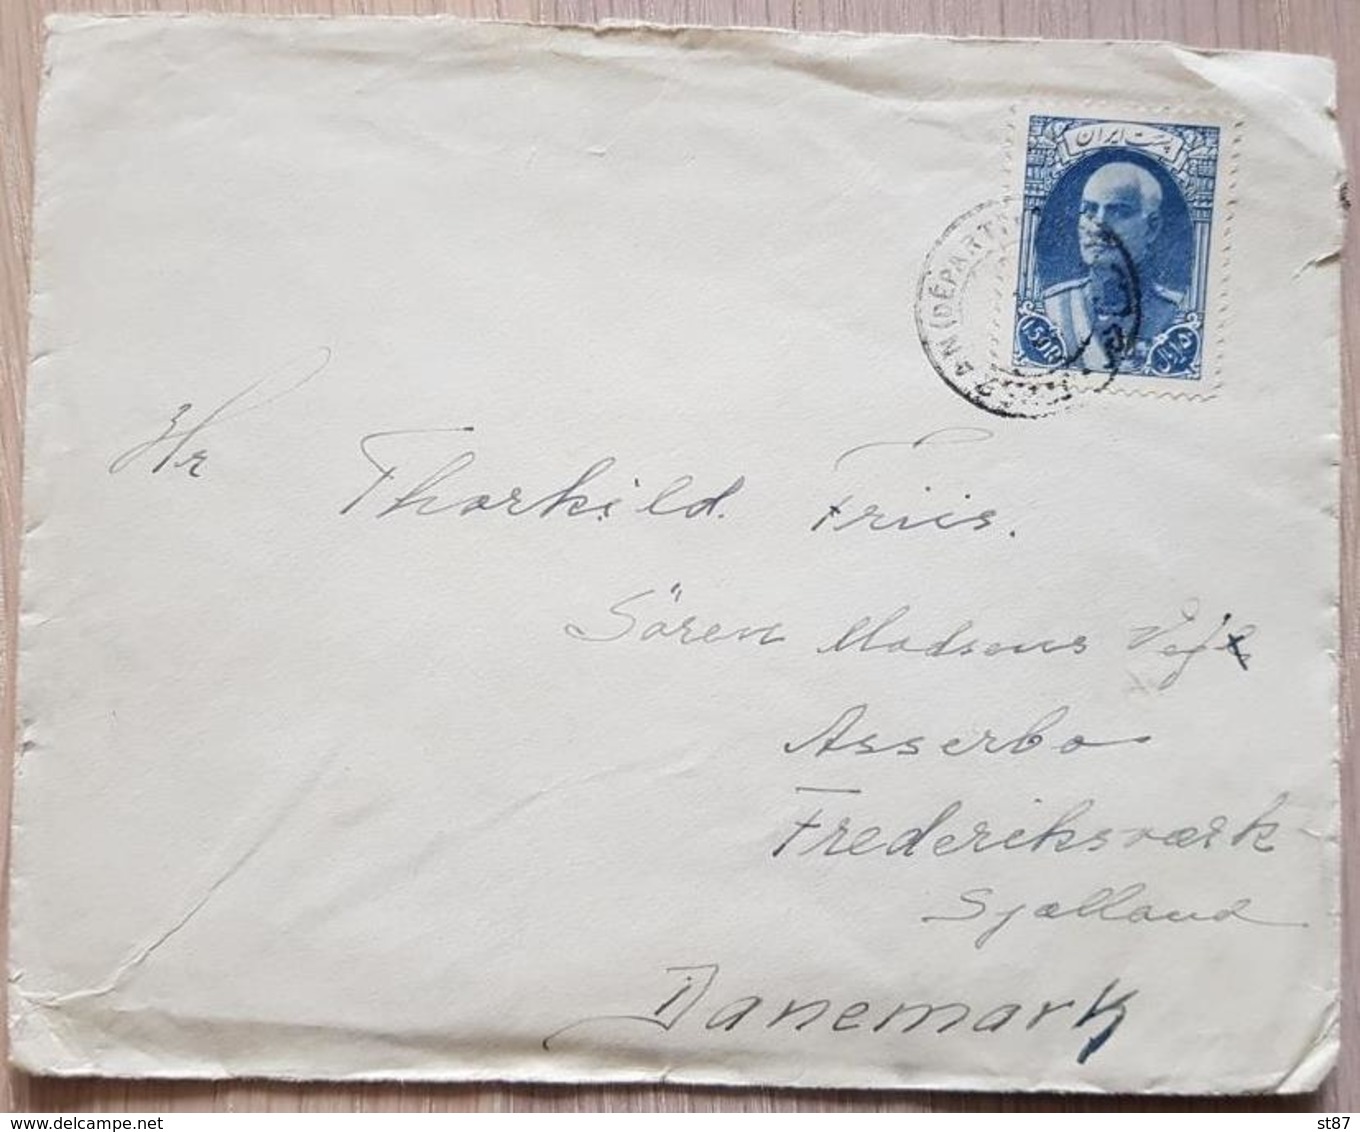 پست ایران
(DÉPART)
1.50R
ریال
Hr Thorkild Friis.
Sören Madsens Vej
Asserbo
Frederiksværk
Sjælland
Danemark
https://www.delcampe.net
st87